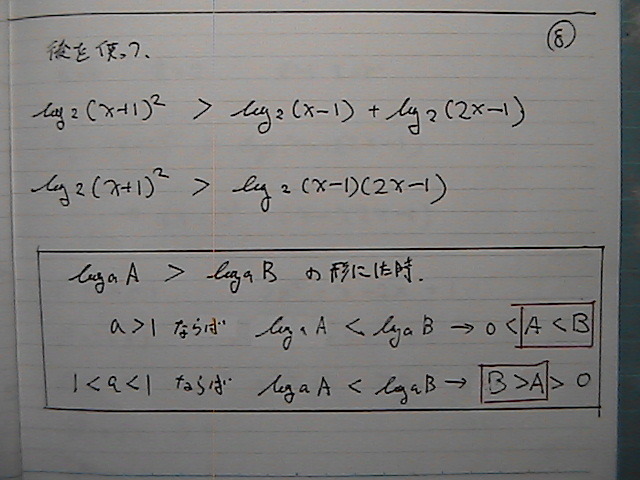 ⑧
後を使って、
log₂(x+1)² > log₂(x-1) + log₂(2x-1)
log₂(x+1)² > log₂(x-1)(2x-1)
logₐA > logₐB の形にした時.
a>1 ならば logₐA < logₐB → 0 < A < B
1<a<1 ならば logₐA < logₐB → B > A > 0